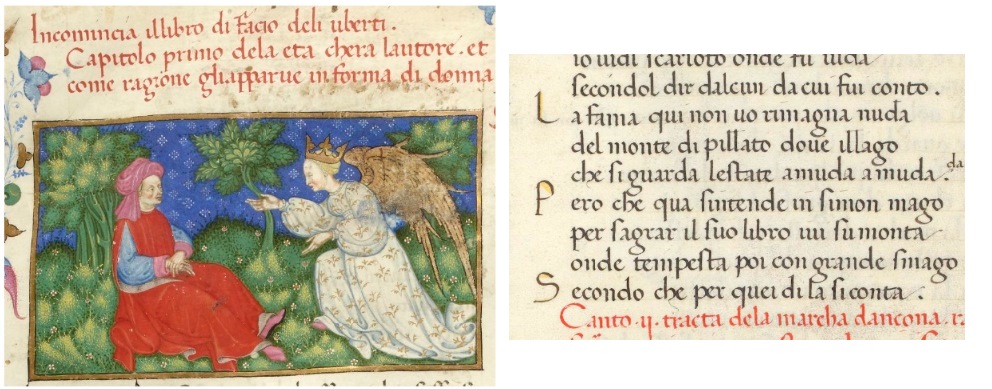 Incomincia illibro di facio deli uberti.
Capitolo primo dela eta chera lautore. et
come ragione gliapparue in forma di donna
io uidi scarioto onde fu uida
secondol dir dalcun da cui fui conto.
La fama qui non uo rimagna nuda
del monte di pillato doue illago
che si guarda lestate amuda amuda. da
Pero che qua sintende in simon mago
per sagrar il suo libro iui su monta
onde tempesta poi con grande smago
Secondo che per quei di la si conta.
Canto .ii. tracta dela marcha dancona.